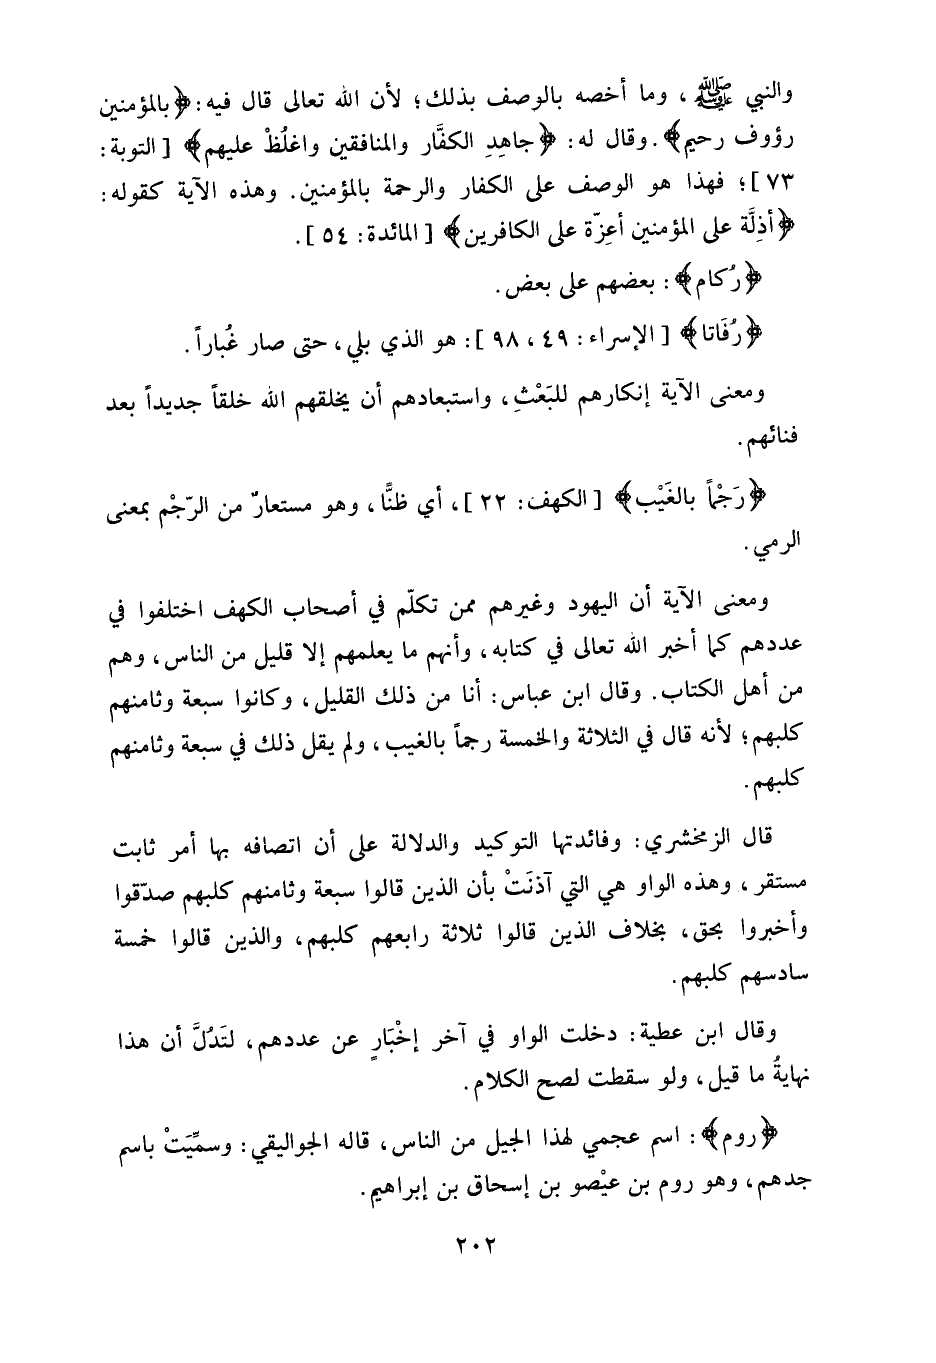 والنبي ﷺ، وما أخصه بالوصف بذلك؛ لأن الله تعالى قال فيه: ﴿بالمؤمنين
رؤوف رحيم﴾. وقال له: ﴿جاهِدِ الكفَّار والمنافقين واغلُظْ عليهم﴾ [التوبة:
٧٣]؛ فهذا هو الوصف على الكفار والرحمة بالمؤمنين. وهذه الآية كقوله:
﴿أذِلَّة على المؤمنين أعِزّة على الكافرين﴾ [المائدة: ٥٤].
﴿رُكام﴾: بعضهم على بعض.
﴿رُفَاتا﴾ [الإسراء: ٤٩، ٩٨]: هو الذي بلي، حتى صار غُباراً.
ومعنى الآية إنكارهم للبَعْثِ، واستبعادهم أن يخلقهم الله خلقاً جديداً بعد
فنائهم.
﴿رَجْماً بالغَيْب﴾ [الكهف: ٢٢]، أي ظنًّا، وهو مستعارٌ من الرّجْم بمعنى
الرمي.
ومعنى الآية أن اليهود وغيرهم ممن تكلّم في أصحاب الكهف اختلفوا في
عددهم كما أخبر الله تعالى في كتابه، وأنهم ما يعلمهم إلا قليل من الناس، وهم
من أهل الكتاب. وقال ابن عباس: أنا من ذلك القليل، وكانوا سبعة وثامنهم
كلبهم؛ لأنه قال في الثلاثة والخمسة رجماً بالغيب، ولم يقل ذلك في سبعة وثامنهم
كلبهم.
قال الزمخشري: وفائدتها التوكيد والدلالة على أن اتصافه بها أمر ثابت
مستقر، وهذه الواو هي التي آذنَتْ بأن الذين قالوا سبعة وثامنهم كلبهم صدّقوا
وأخبروا بحق، بخلاف الذين قالوا ثلاثة رابعهم كلبهم، والذين قالوا خمسة
سادسهم كلبهم.
وقال ابن عطية: دخلت الواو في آخر إخْبَارٍ عن عددهم، لتَدُلَّ أن هذا
نهايةُ ما قيل، ولو سقطت لصح الكلام.
﴿روم﴾: اسم عجمي لهذا الجيل من الناس، قاله الجواليقي: وسمِّيَتْ باسم
جدهم، وهو روم بن عيْصو بن إسحاق بن إبراهيم.
٢٠٢